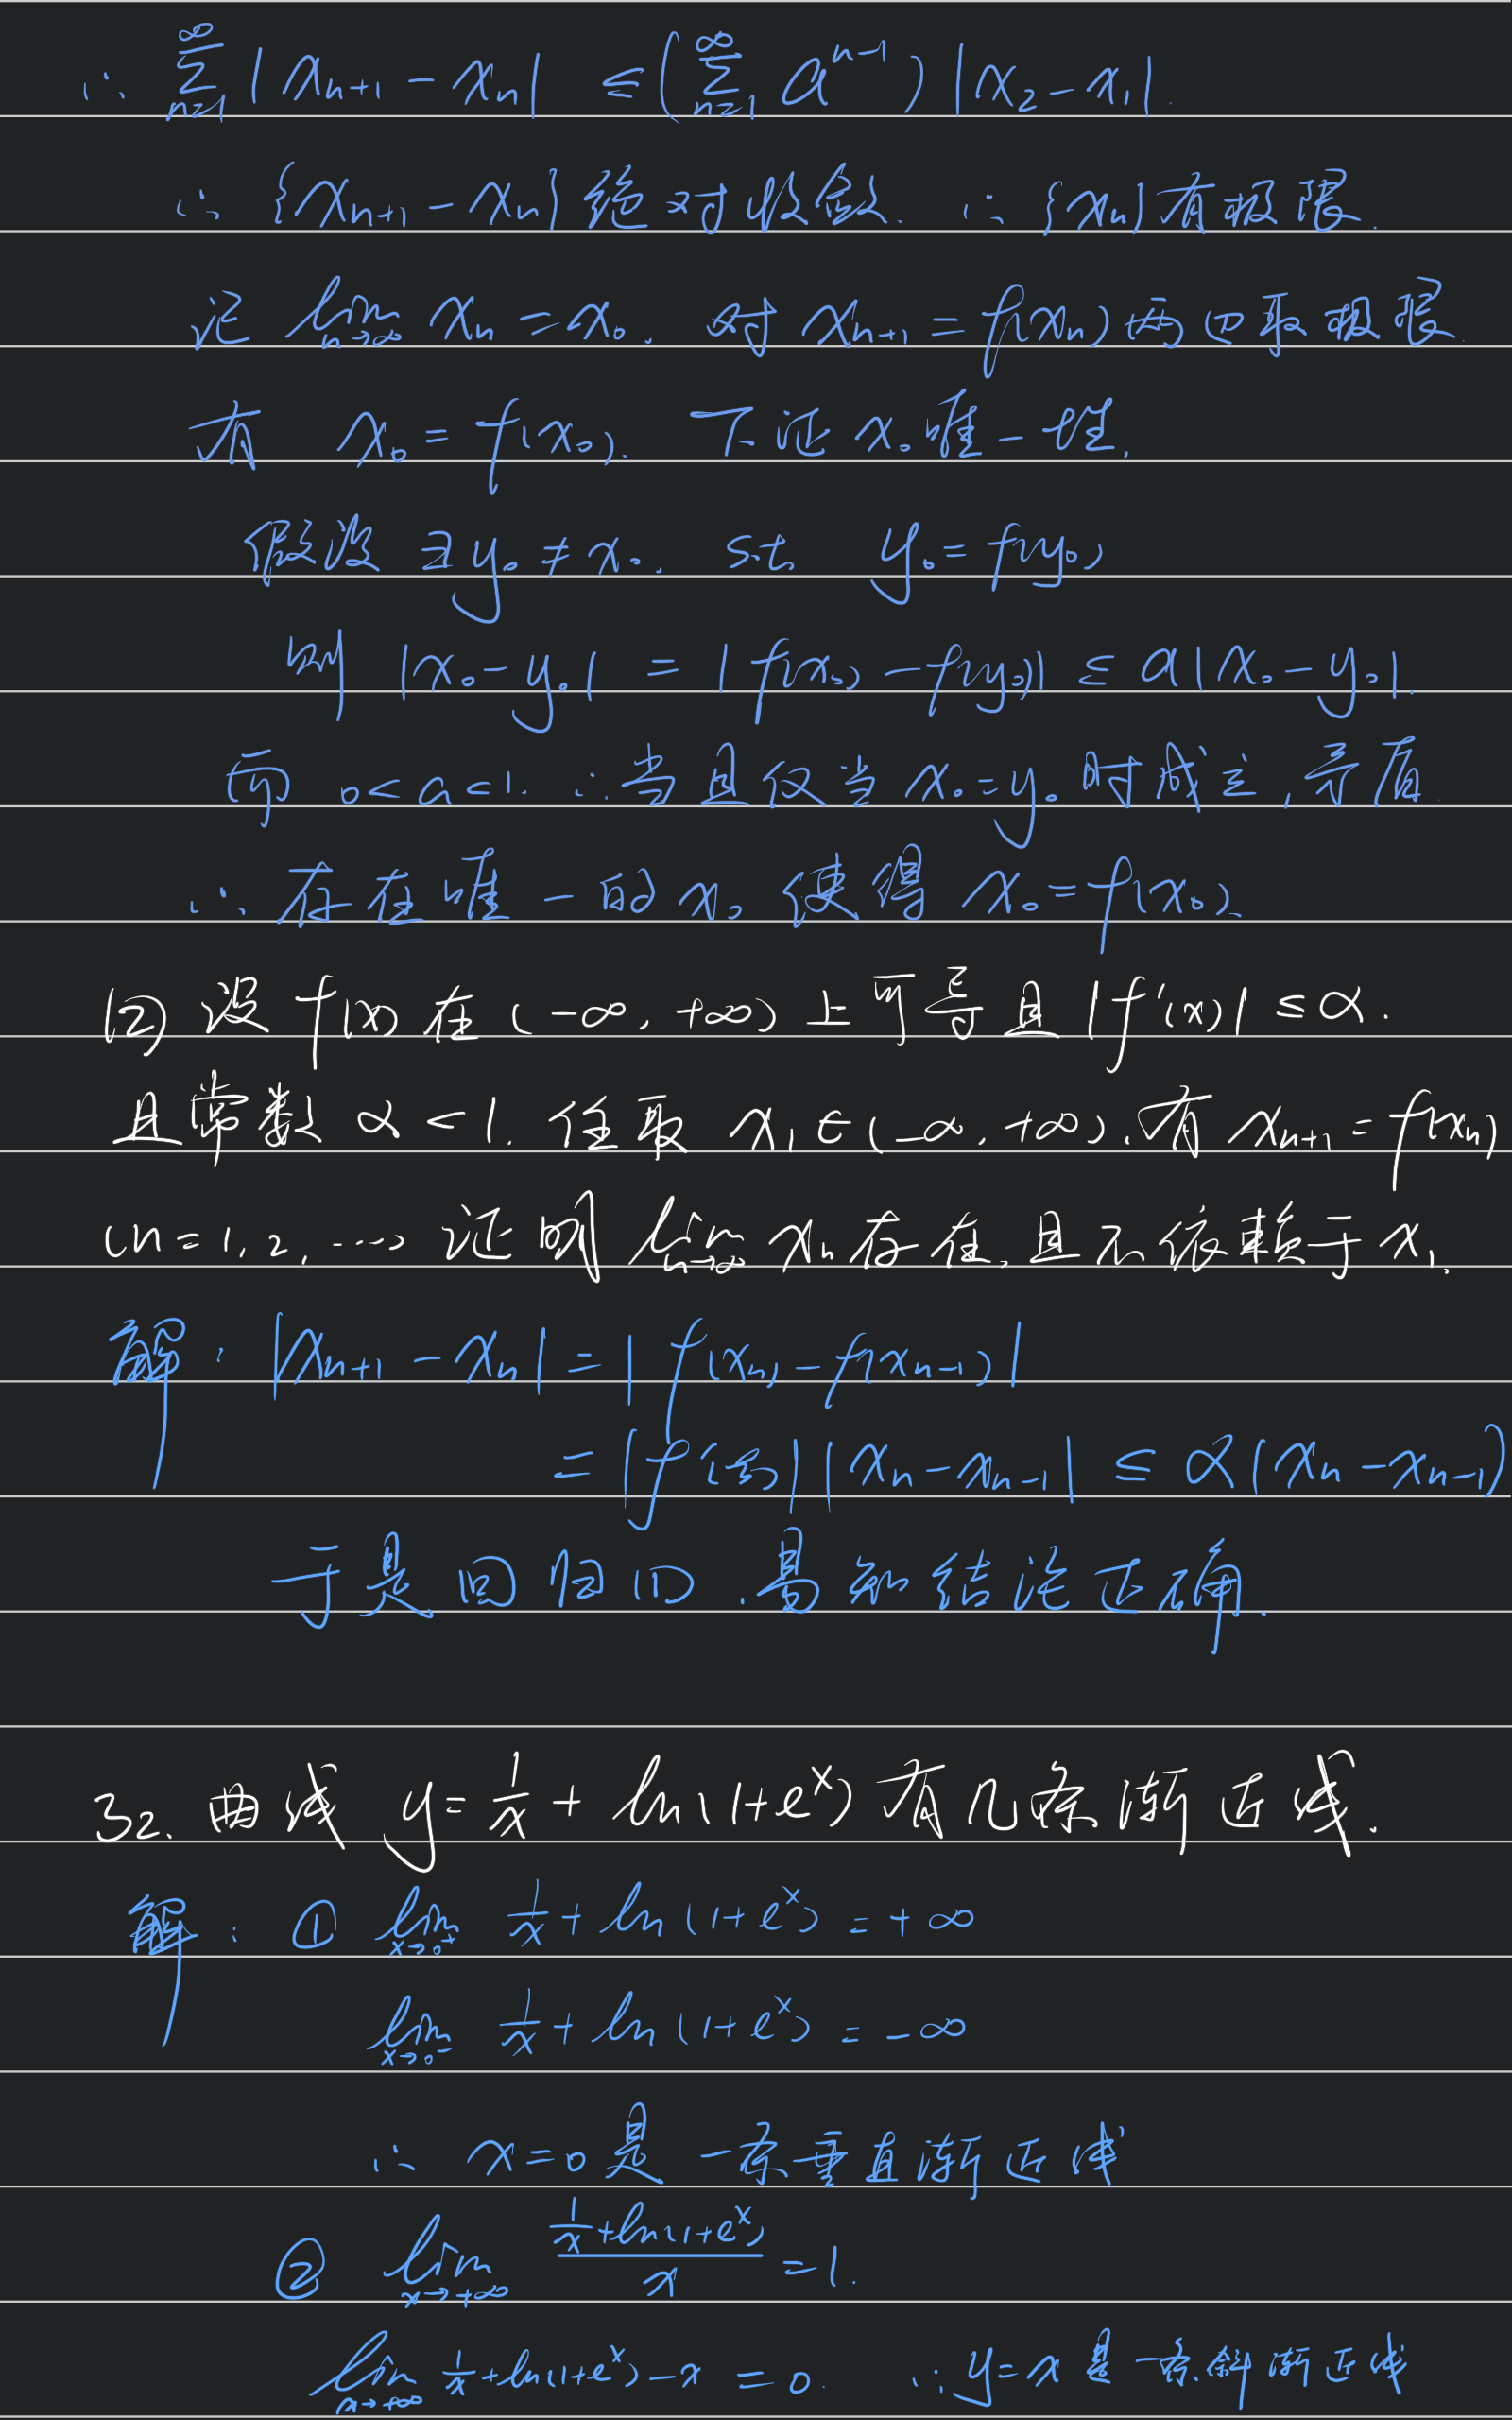 ∴ ∑_{n=1}^{∞} |x_{n+1} - x_n| ≤ (∑_{n=1}^{∞} a^{n-1}) |x_2 - x_1|.
∴ {x_{n+1} - x_n} 绝对收敛. ∴ {x_n} 有极限.
记 lim_{n→∞} x_n = x_0. 对 x_{n+1} = f(x_n) 两边取极限.
有 x_0 = f(x_0). 下证 x_0 唯一性.
假设 ∃ y_0 ≠ x_0. s.t. y_0 = f(y_0)
则 |x_0 - y_0| = |f(x_0) - f(y_0)| ≤ a|x_0 - y_0|.
而 0<a<1. ∴ 当且仅当 x_0 = y_0 时成立, 矛盾.
∴ 存在唯一的 x_0 使得 x_0 = f(x_0).
(2) 设 f(x) 在 (-∞, +∞) 上可导且 |f'(x)| ≤ α.
且常数 α < 1. 任取 x_1 ∈ (-∞, +∞). 有 x_{n+1} = f(x_n)
(n=1, 2, ...) 证明 lim_{n→∞} x_n 存在, 且不依赖于 x_1.
解: |x_{n+1} - x_n| = |f(x_n) - f(x_{n-1})|
= |f'(ξ)| |x_n - x_{n-1}| ≤ α (x_n - x_{n-1})
于是回归(1). 易知结论正确.
32. 曲线 y = 1/x + ln(1+e^x) 有几条渐近线.
解: ① lim_{x→0^+} 1/x + ln(1+e^x) = +∞
lim_{x→0^-} 1/x + ln(1+e^x) = -∞
∴ x=0 是一条垂直渐近线
② lim_{x→+∞} (1/x + ln(1+e^x))/x = 1.
lim_{x→+∞} 1/x + ln(1+e^x) - x = 0. ∴ y=x 是一条斜渐近线